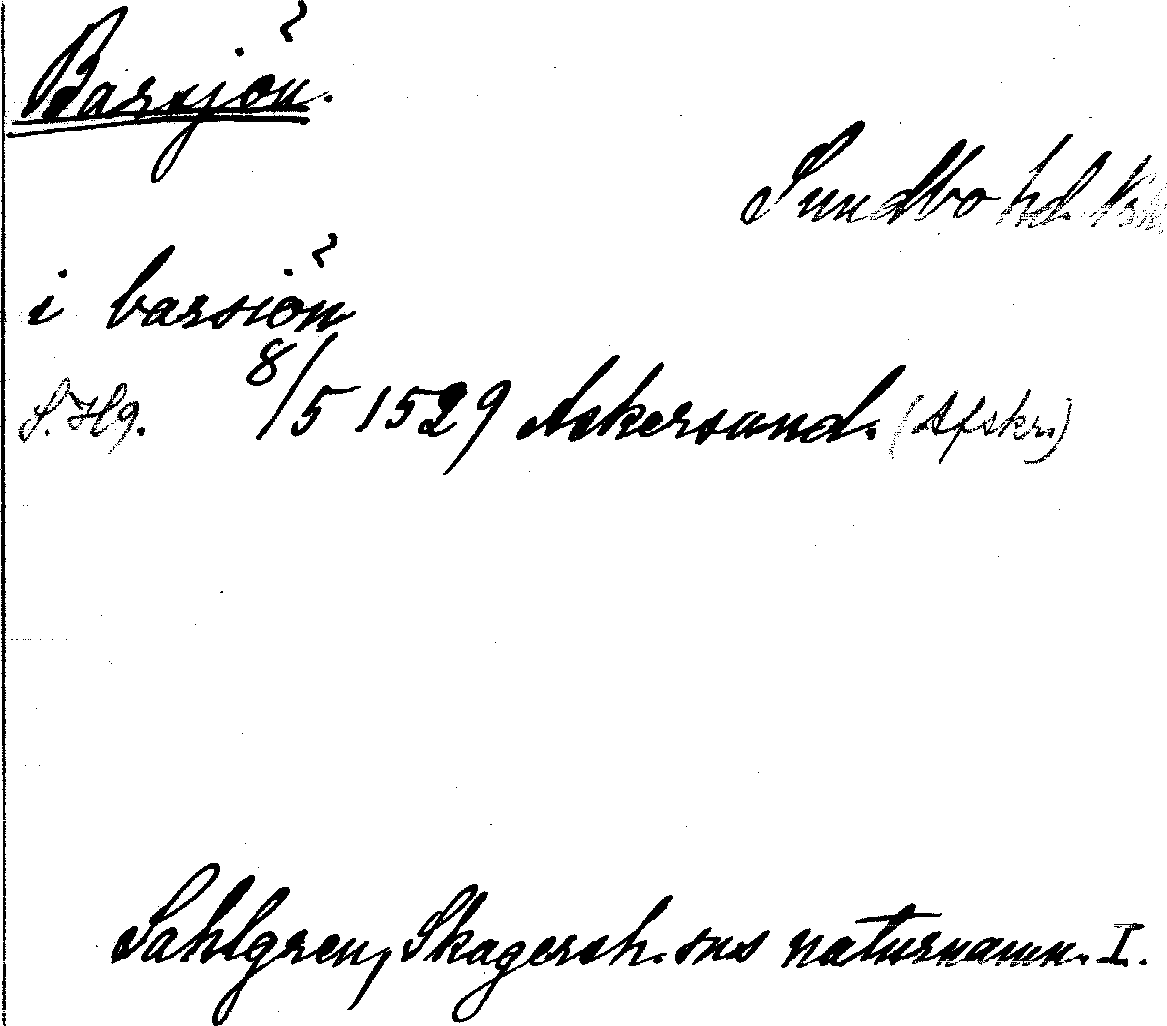 Barsjön.
Sundbo hd
i barsiön
S. Hg. 8/5 1529 Askersund. (Afskr.)
Sahlgren, Skagersh. sns naturnamn. I.